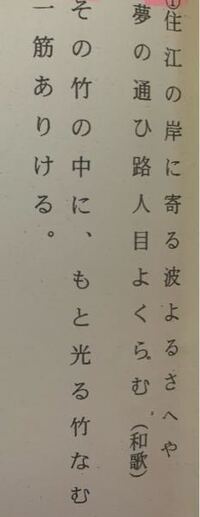 ①住江の岸に寄る波よるさへや
夢の通ひ路人目よくらむ（和歌）
その竹の中に、もと光る竹なむ
一筋ありける。